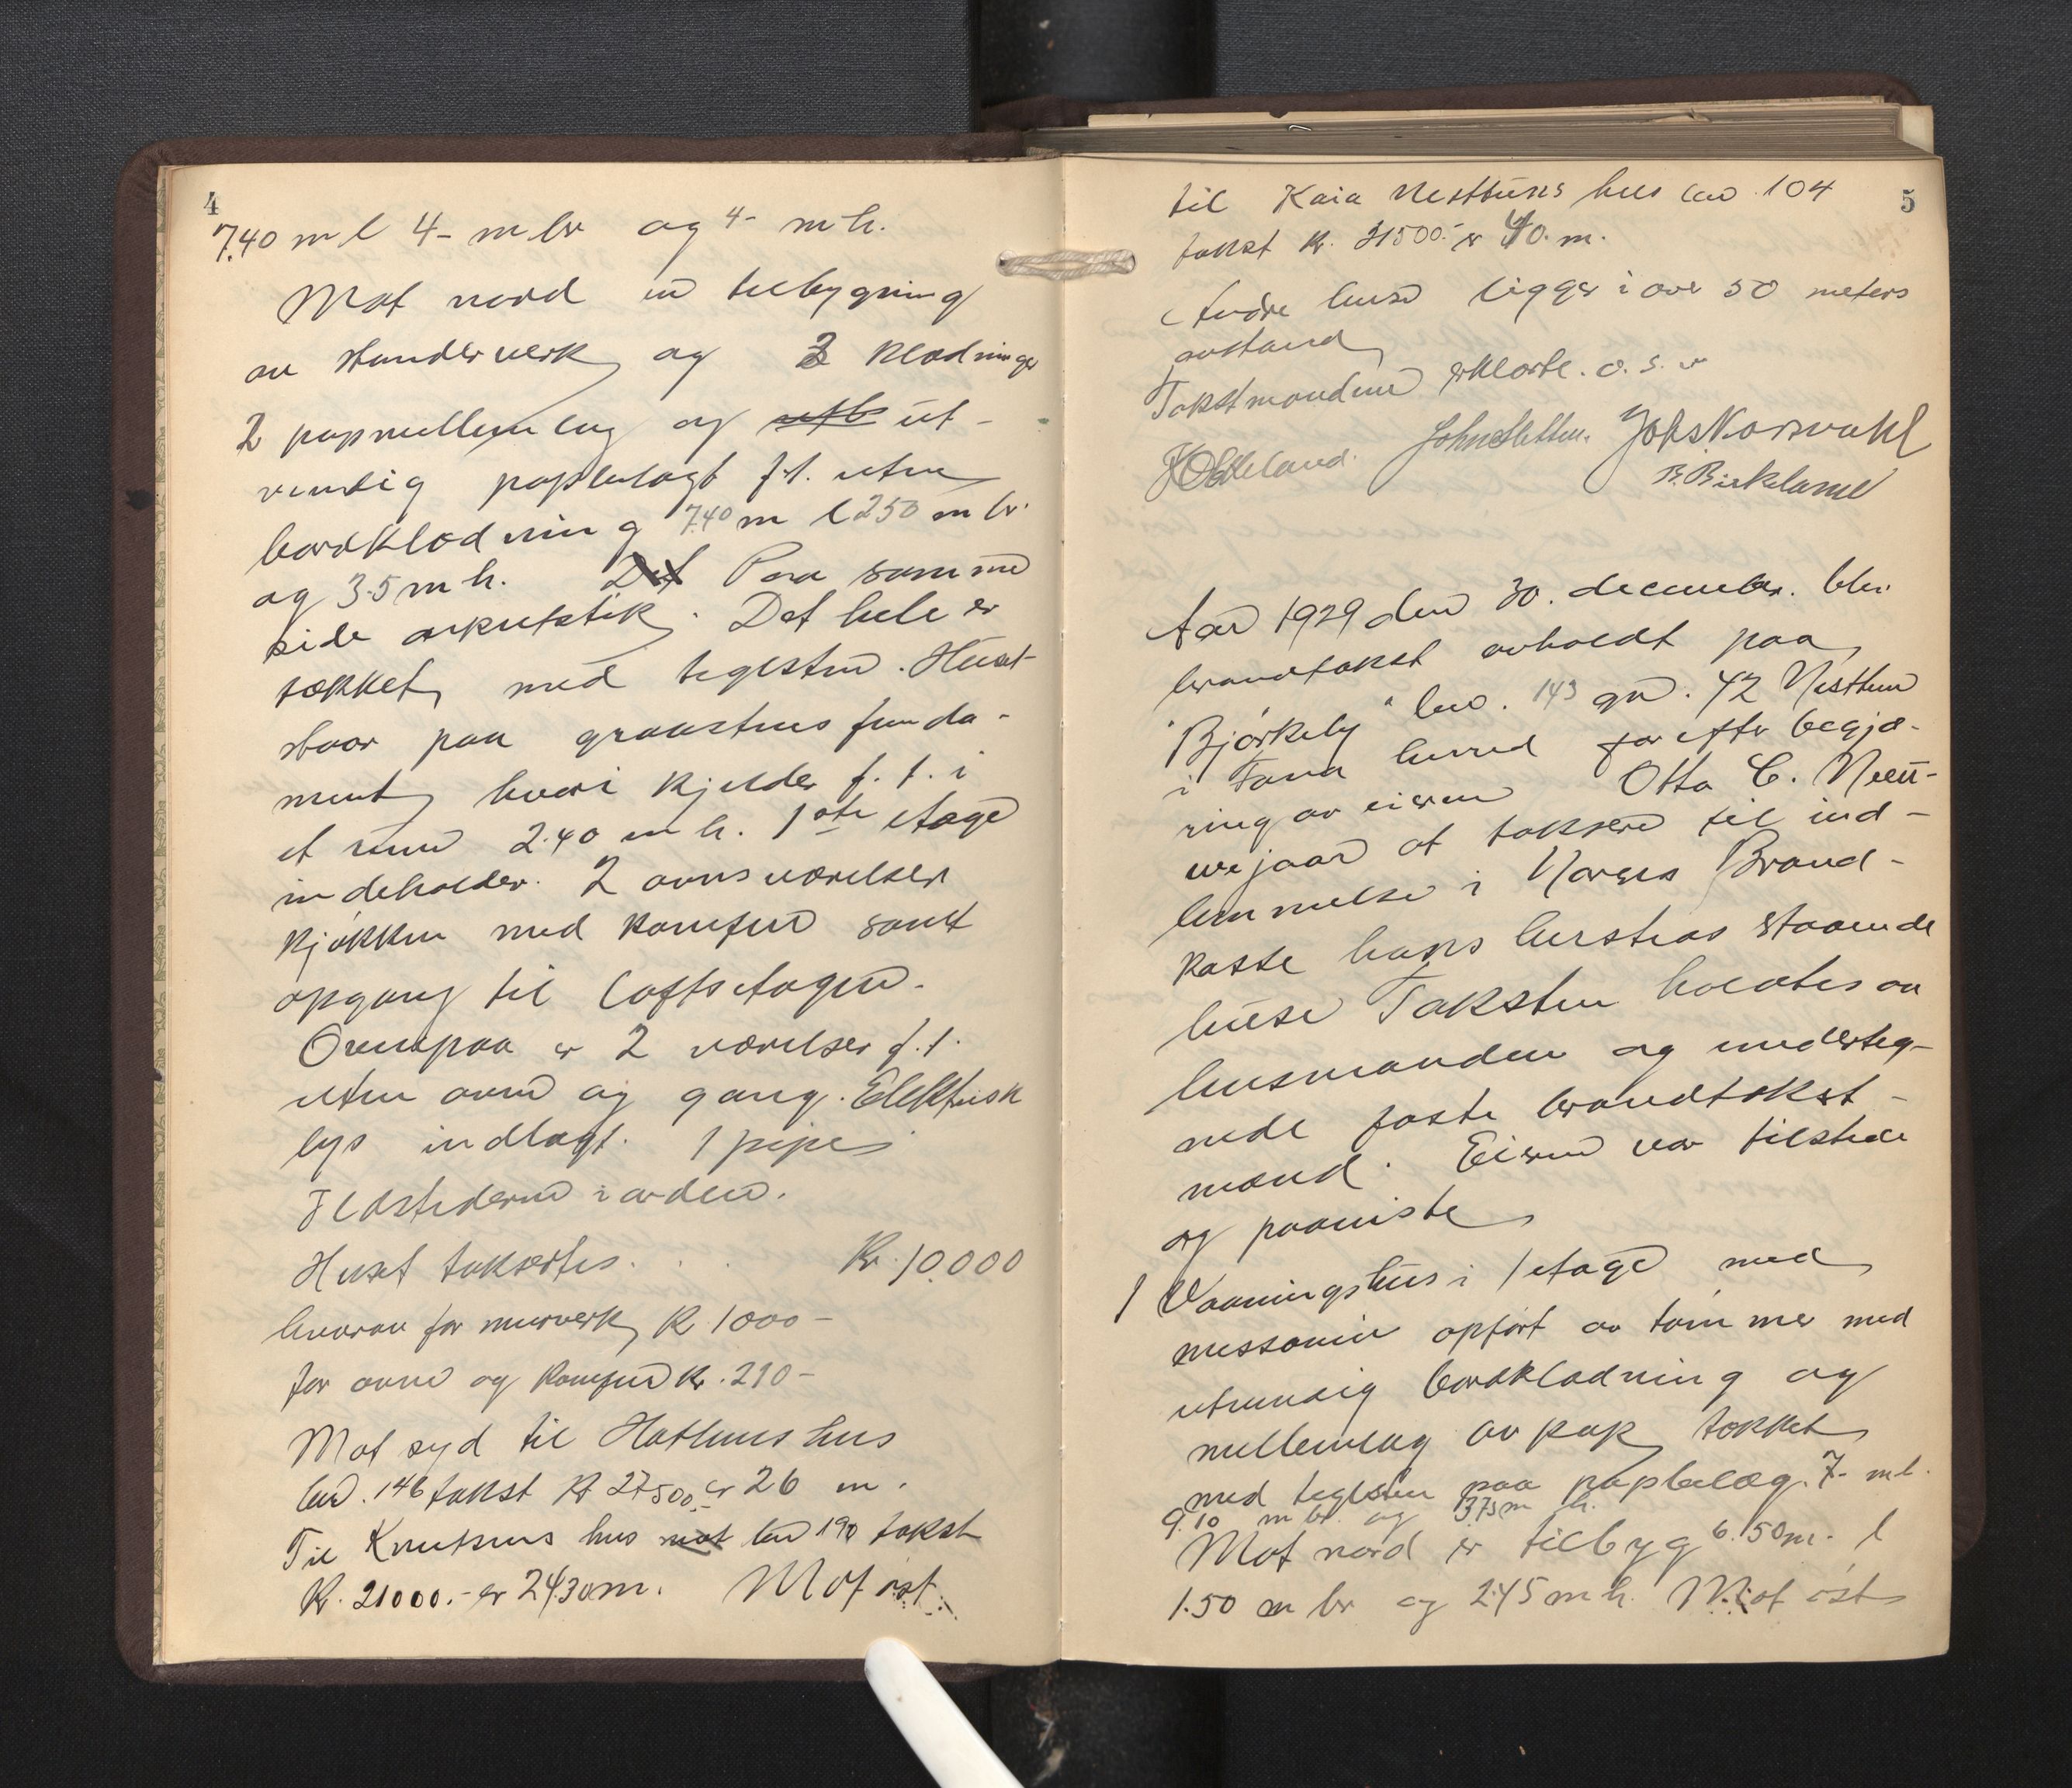 4
7.40 m l 4- m br og 4- m h.
Mot nord en tilbygning
av stenderverk og 2 klædninger
2 papmellemlag og utb ut-
vendig papbelagt f.t. uten
bordklædning 7.40 m l 250 m br.
og 3.5 m h. Det Paa samme
side arkutstik. Det hele er
tækket med teglsten. Huset
staar paa graastens funda-
ment hvori kjelder f.t. i
et rum 2.40 m h. 1ste etage
indeholder. 2 ovnsværelser
kjøkken med komfur samt
opgang til loftsetagen.
Ovenpaa er 2 værelser f.t.
uten ovne og gang. Elektrisk
lys indlagt. 1 pipe
Ildstederne i orden.
Huset takseres . . . Kr. 10.000
hvorav for murverk K 1000-
for ovne og komfur Kr. 210-
Mot syd til Hatlens hus
bno. 146 takst Kr 27500.- er 26 m.
Til Knutsens hus mot bno 190 takst
Kr. 21000.- er 24.30 m. Mot øst
5
til Kaia Nesttuns hus bno 104
takst Kr. 21500.- er 40. m.
Andre huse ligger i over 50 meters
avstand
Takstmændene erklærte. o. s. v
John Sletten. Johs Norsvahl
B. Birkeland
Aar 1929 den 30. december. blev
brandtakst avholdt paa
"Bjørkely" bno. 143 gn. 42 Nesttun
i Fana herred for efter begjæ-
ring av eieren Otto C.
at taksere til ind-
lemmelse i Norges Brand-
kasse hans hersteds staaende
huse Taksten holdtes av
lensmanden og underteg-
nede faste brandtakst-
mænd. Eieren var tilstede
og paaviste
1 Vaaningshus i 1 etage med
messanin opført av tømmer med
utvendig bordklædning og
mellemlag av pap tækket
med teglsten paa papbelæg. 7- m l.
9.10 m br. og 3.75 m h.
Mot nord er tilbyg 6.50 m. l
1.50 m br og 2.45 m h. Mot øst